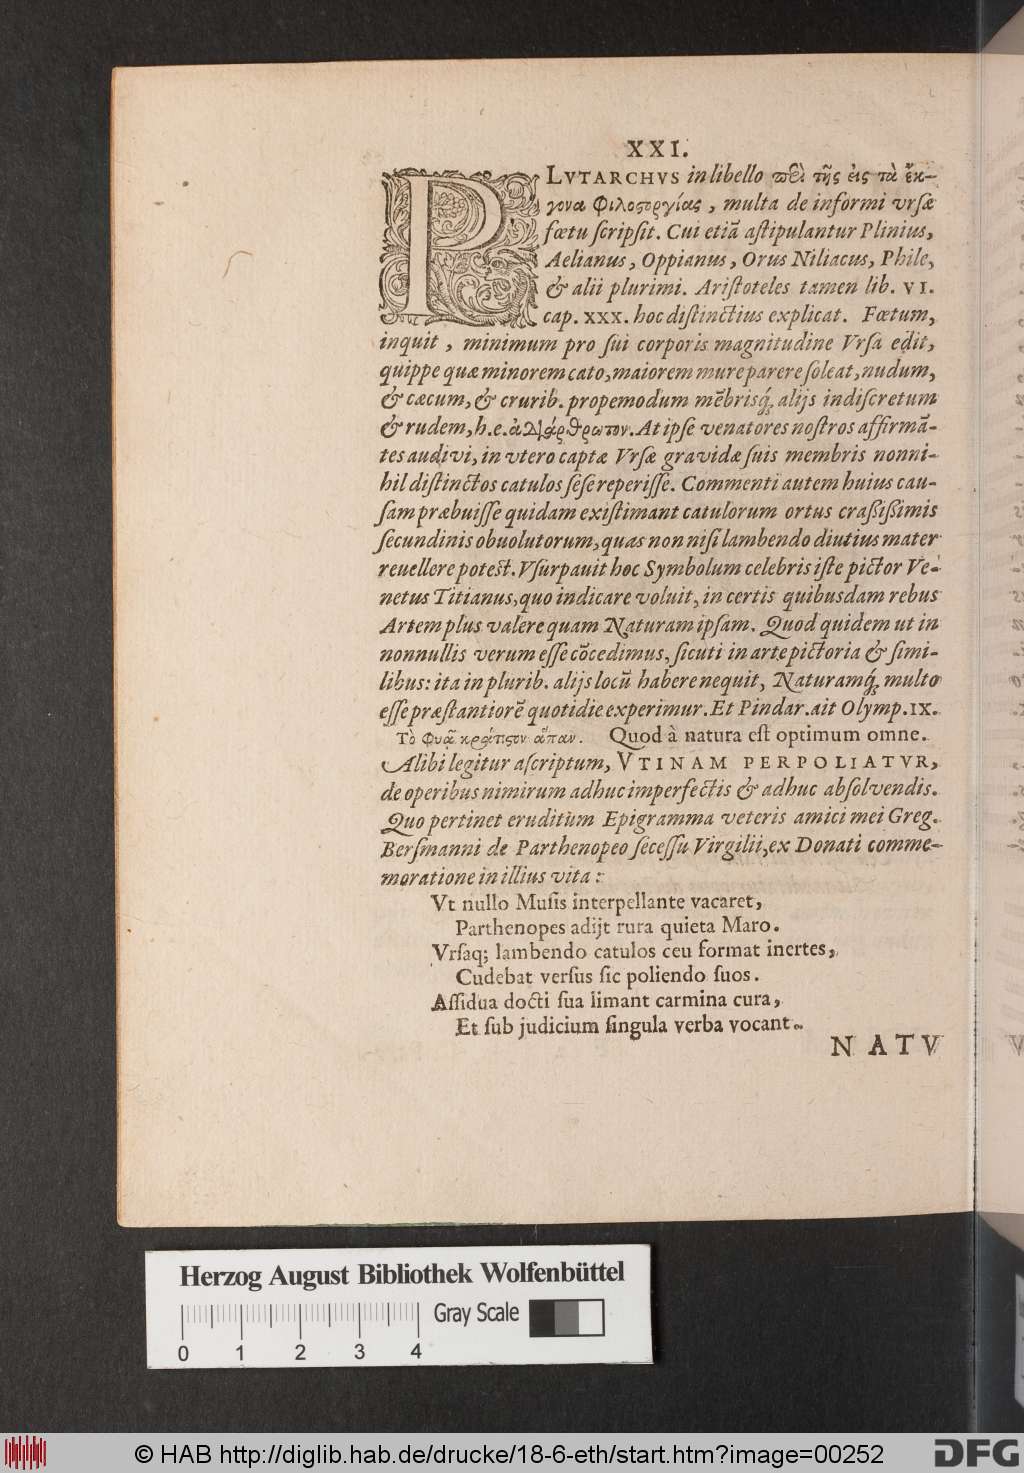 XXI.
PLVTARCHVS in libello πεὶ τῆς εἰς τὰ ἔκ-
γονα φιλοςοργίας, multa de informi vrsæ
fœtu scripsit. Cui etiā astipulantur Plinius,
Aelianus, Oppianus, Orus Niliacus, Phile,
& alii plurimi. Aristoteles tamen lib. VI.
cap. XXX. hoc distinctius explicat. Fœtum,
inquit, minimum pro sui corporis magnitudine Vrsa edit,
quippe quæ minorem cato, maiorem mure parere soleat, nudum,
& cæcum, & crurib. propemodum mēbrisq́; alijs indiscretum
& rudem, h.e. ἀδιάρθρωτον. At ipse venatores nostros affirmā-
tes audivi, in vtero captæ Vrsæ gravidæ suis membris nonni-
hil distinctos catulos sese reperisse. Commenti autem huius cau-
sam præbuisse quidam existimant catulorum ortus craßißimis
secundinis obuolutorum, quas non nisi lambendo diutius mater
reuellere potest. Vsurpauit hoc Symbolum celebris iste pictor Ve-
netus Titianus, quo indicare voluit, in certis quibusdam rebus
Artem plus valere quam Naturam ipsam. Quod quidem ut in
nonnullis verum esse cōcedimus, sicuti in arte pictoria & simi-
libus: ita in plurib. alijs locū habere nequit, Naturamq́; multo
esse præstantiorē quotidie experimur. Et Pindar. ait Olymp. IX.
Τὸ φυᾷ κράτιςον ἅπαν. Quod à natura est optimum omne.
Alibi legitur ascriptum, VTINAM PERPOLIATVR,
de operibus nimirum adhuc imperfectis & adhuc absolvendis.
Quo pertinet eruditum Epigramma veteris amici mei Greg.
Bersmanni de Parthenopeo secessu Virgilii, ex Donati comme-
moratione in illius vita:
Vt nullo Musis interpellante vacaret,
Parthenopes adijt rura quieta Maro.
Vrsaq; lambendo catulos ceu format inertes,
Cudebat versus sic poliendo suos.
Assidua docti sua limant carmina cura,
Et sub judicium singula verba vocant.
NATV
Herzog August Bibliothek Wolfenbüttel
Gray Scale
0 1 2 3 4
© HAB http://diglib.hab.de/drucke/18-6-eth/start.htm?image=00252
DFG